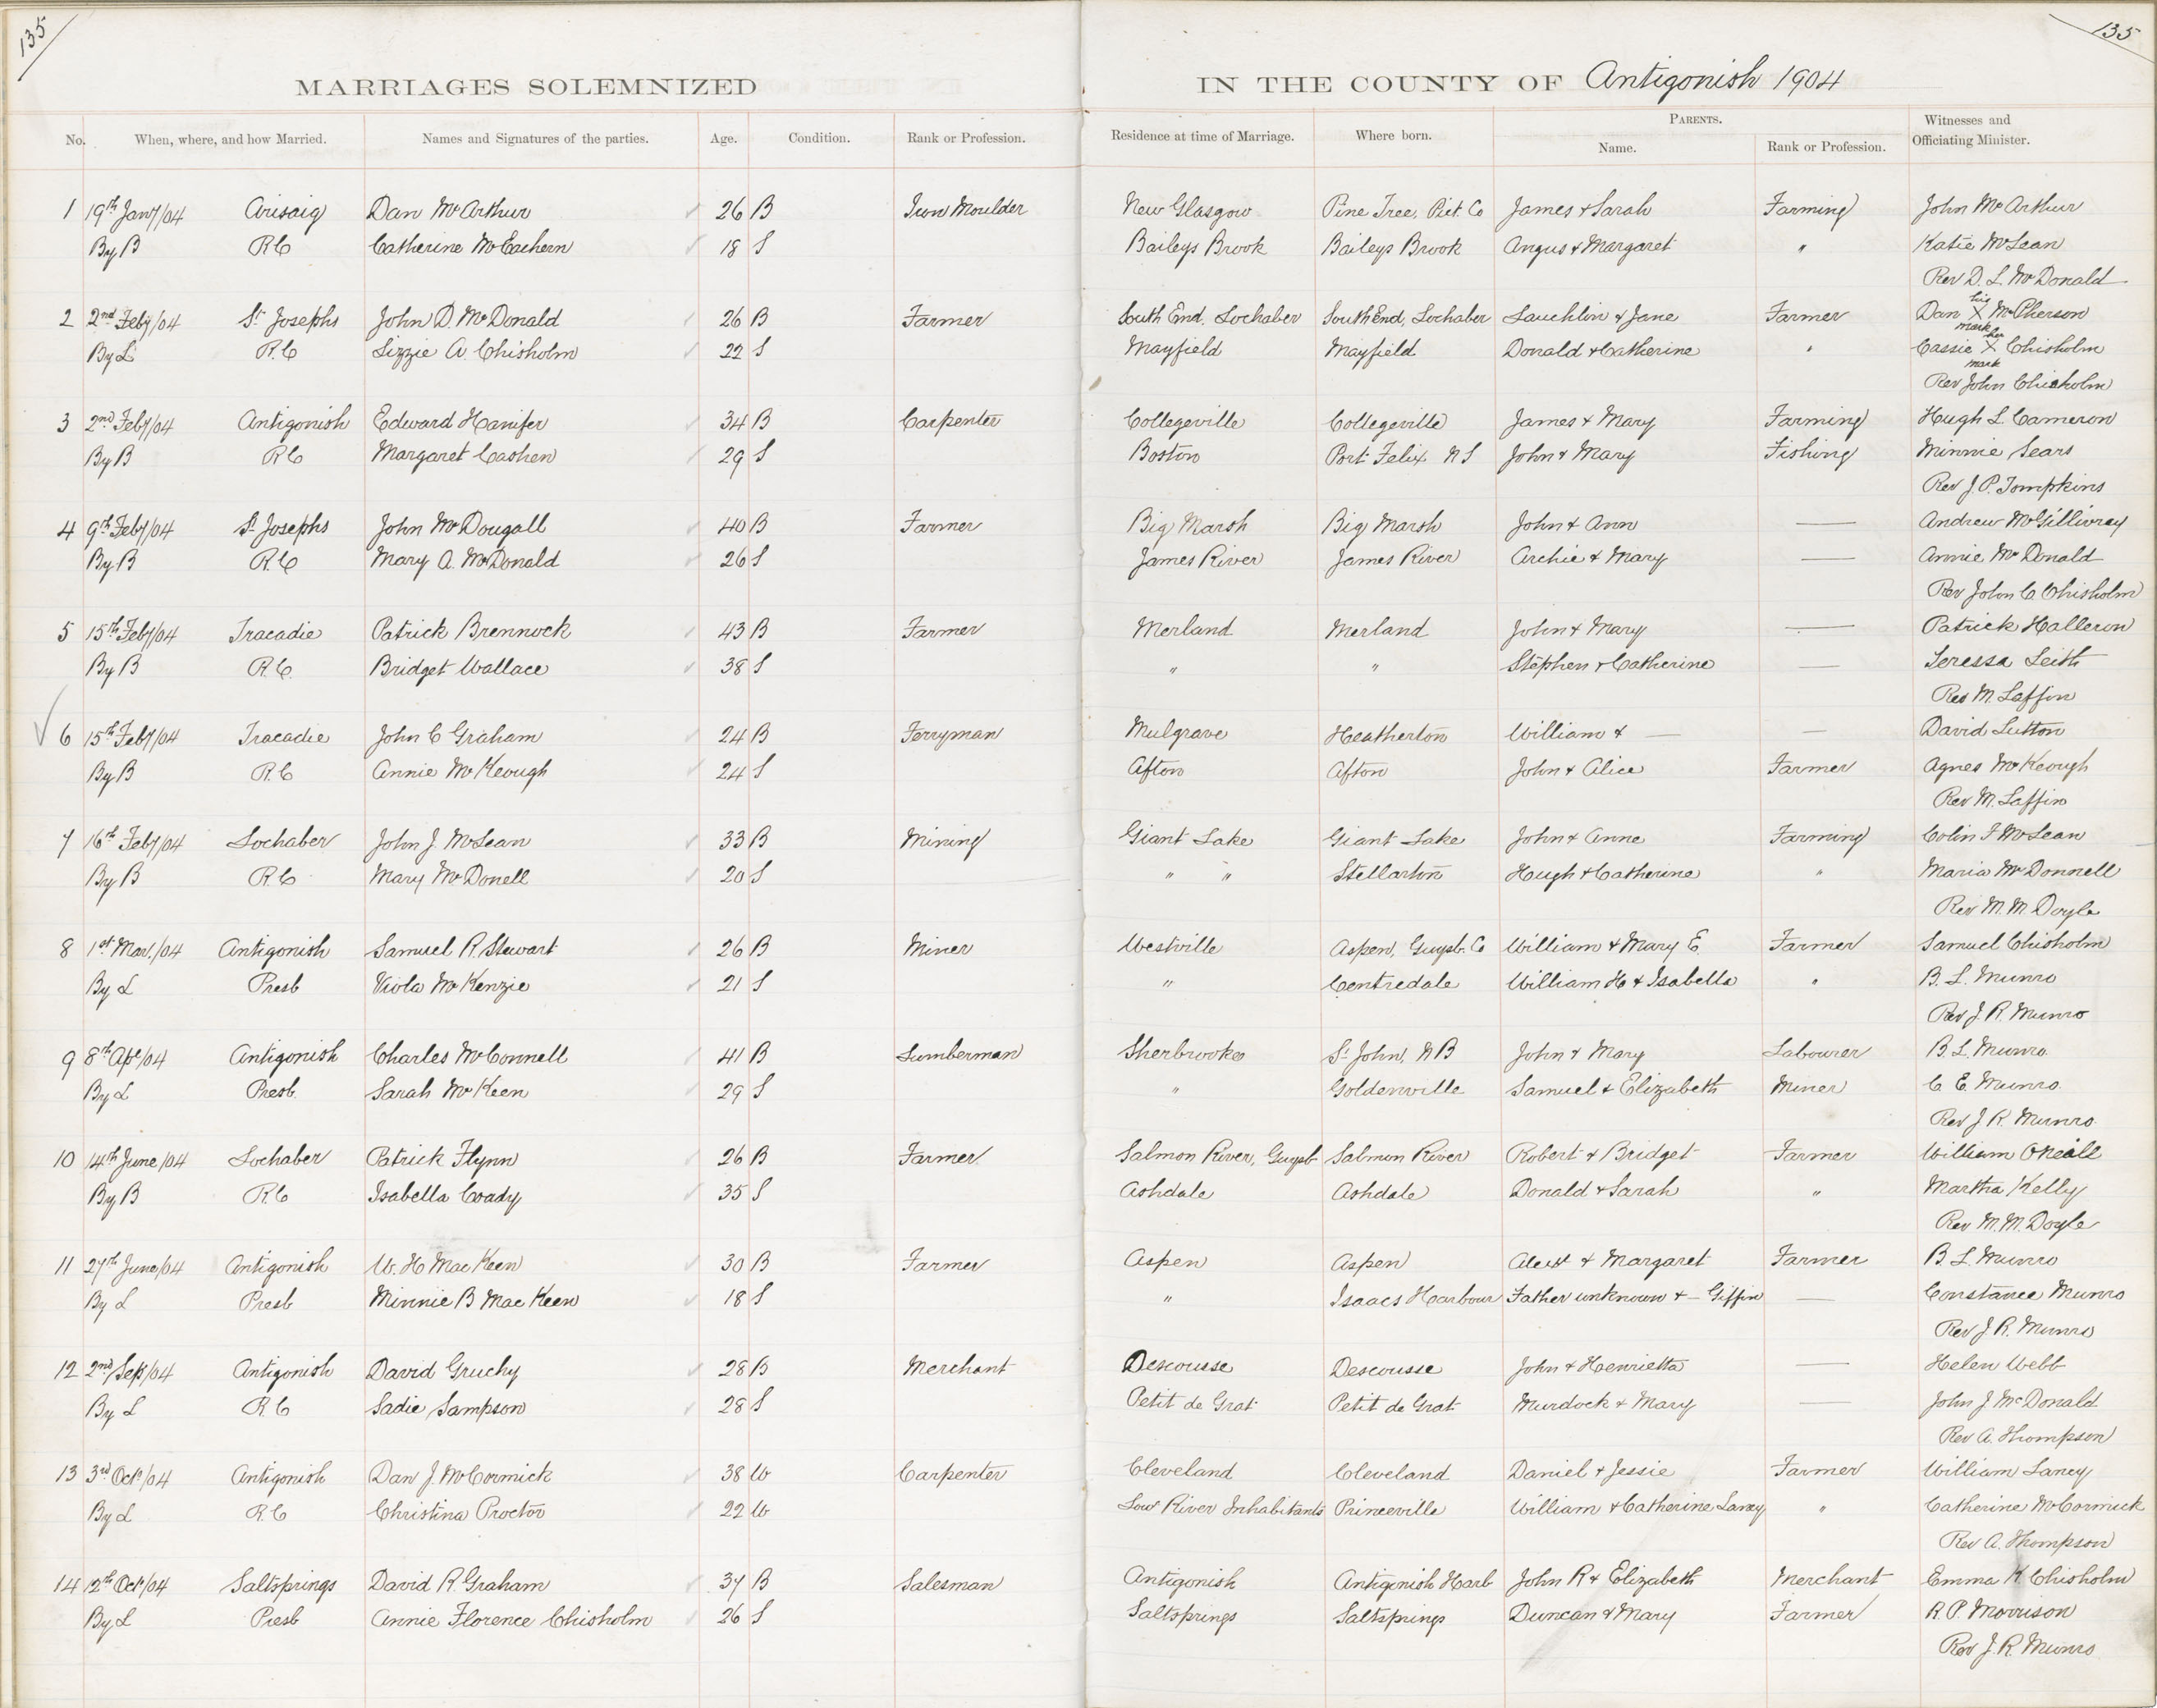 135
135
MARRIAGES SOLEMNIZED IN THE COUNTY OF Antigonish 1904
No. When, where, and how Married. Names and Signatures of the parties. Age. Condition. Rank or Profession. Residence at time of Marriage. Where born. PARENTS. Name. Rank or Profession. Witnesses and Officiating Minister.
1 19th Jany/04 Arisaig Dan McArthur 26 B Iron Moulder New Glasgow Pine Tree, Pict. Co James & Sarah Farming John McArthur
By B R C Catherine McEachern 18 S Baileys Brook Baileys Brook Angus & Margaret " Katie McLean
Rev D. L. McDonald
2 2nd Feby/04 St Josephs John D. McDonald 26 B Farmer South End, Lochaber South End, Lochaber Lauchlin & Jane Farmer Dan his X mark McPherson
By L R. C Lizzie A. Chisholm 22 S Mayfield Mayfield Donald & Catherine " Cassie her X mark Chisholm
Rev John Chisholm
3 2nd Feby/04 Antigonish Edward Hanifer 34 B Carpenter Collegeville Collegeville James & Mary Farming Hugh L. Cameron
By B R C Margaret Cashen 29 S Boston Port Felix N S John & Mary Fishing Minnie Sears
Rev J. P. Tompkins
4 9th Feby/04 St Josephs John McDougall 40 B Farmer Big Marsh Big Marsh John & Ann — Andrew McGillivray
By B R. C Mary A. McDonald 26 S James River James River Archie & Mary — Annie McDonald
Rev John C Chisholm
5 15th Feby/04 Tracadie Patrick Brennock 43 B Farmer Merland Merland John & Mary — Patrick Halleron
By B R. C. Bridget Wallace 38 S " " Stephen & Catherine — Teressa Leith
Rev M. Laffin
6 15th Feby/04 Tracadie John C Graham 24 B Ferryman Mulgrave Heatherton William & — — David Sutton
By B R. C Annie McKeough 24 S Afton Afton John & Alice Farmer Agnes McKeough
Rev M. Laffin
7 16th Feby/04 Lochaber John J. McLean 33 B Mining Giant Lake Giant Lake John & Anne Farming Colin F McLean
By B R. C Mary McDonell 20 S " " Stellarton Hugh & Catherine " Maria McDonnell
Rev M. M. Doyle
8 1st Mar./04 Antigonish Samuel R. Stewart 26 B Miner Westville Aspen, Guysb. Co William & Mary E. Farmer Samuel Chisholm
By L Presb Viola McKenzie 21 S " Centredale William H & Isabella " B. L. Munro
Rev J. R. Munro
9 8th Apl/04 Antigonish Charles McConnell 41 B Lumberman Sherbrooke St John, N B John & Mary Labourer B. L. Munro
By L Presb. Sarah McKeen 29 S " Goldenville Samuel & Elizabeth Miner C E. Munro
Rev J R. Munro
10 14th June/04 Lochaber Patrick Flynn 26 B Farmer Salmon River, Guysb Salmon River Robert & Bridget Farmer William ONeill
By B R. C Isabella Coady 35 S Ashdale Ashdale Donald & Sarah " Martha Kelly
Rev M. M. Doyle
11 27th June/04 Antigonish W. H. MacKeen 30 B Farmer Aspen Aspen Alexr & Margaret Farmer B. L. Munro
By L Presb Minnie B MacKeen 18 S " Isaacs Harbour Father unknown & — Giffin — Constance Munro
Rev J R. Munro
12 2nd Sep/04 Antigonish David Gruchy 28 B Merchant Descousse Descousse John & Henrietta — Helen Webb
By L R. C Sadie Sampson 28 S Petit de Grat Petit de Grat Murdock & Mary — John J McDonald
Rev A. Thompson
13 3rd Oct/04 Antigonish Dan J. McCormick 38 W Carpenter Cleveland Cleveland Daniel & Jessie Farmer William Laney
By L R. C Christina Proctor 22 W Lowr River Inhabitants Princeville William & Catherine Laney " Catherine McCormick
Rev A. Thompson
14 12th Oct/04 Saltsprings David R. Graham 37 B Salesman Antigonish Antigonish Harb John R & Elizabeth Merchant Emma K Chisholm
By L Presb Annie Florence Chisholm 26 S Saltsprings Saltsprings Duncan & Mary Farmer R. P. Morrison
Rev J. R. Munro